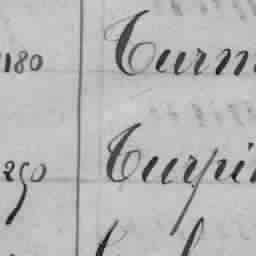 180 Turm
250 Turpin